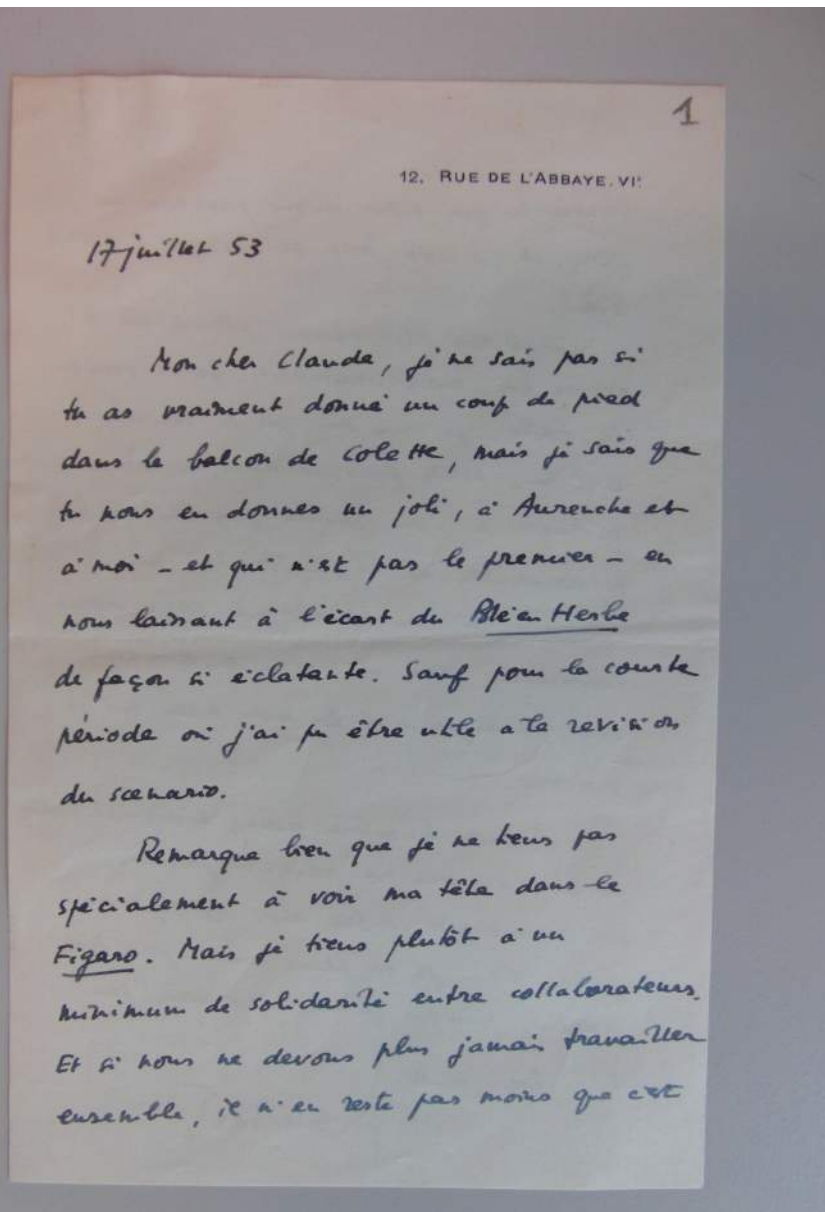 1
12, RUE DE L'ABBAYE. VIe
17 juillet 53
Mon cher Claude, je ne sais pas si
tu as vraiment donné un coup de pied
dans le balcon de Colette, mais je sais que
tu nous en donnes un joli, à Aurenche et
à moi - et qui n'est pas le premier - en
nous laissant à l'écart du Blé en Herbe
de façon si éclatante. Sauf pour la courte
période où j'ai pu être utile a la revision
du scenario.
Remarque bien que je ne tiens pas
spécialement à voir ma tête dans le
Figaro. Mais je tiens plutôt à un
minimum de solidarité entre collaborateurs.
Et si nous ne devons plus jamais travailler
ensemble, il n'en reste pas moins que c'est